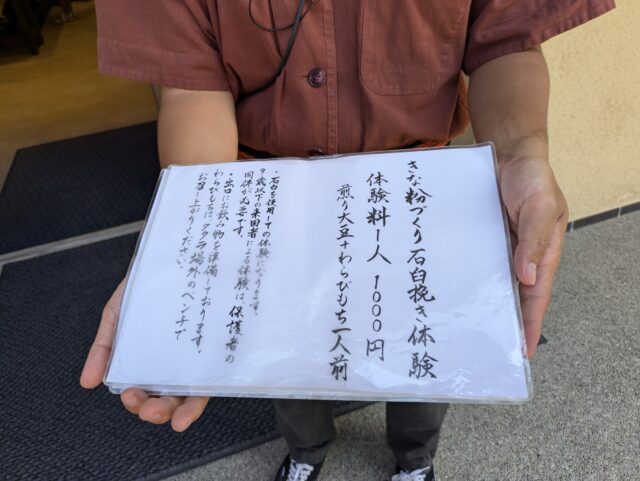 きな粉づくり石臼挽き体験
体験料1人 1000円
煎り大豆+わらびもち一人前
・石臼を使用しての体験になります。
9歳以下の来園者による体験は、保護者の
同伴が必要です。
・出口にお飲み物を準備しております。
わらびもちは、タタラ場外のベンチで
お召し上がりください。